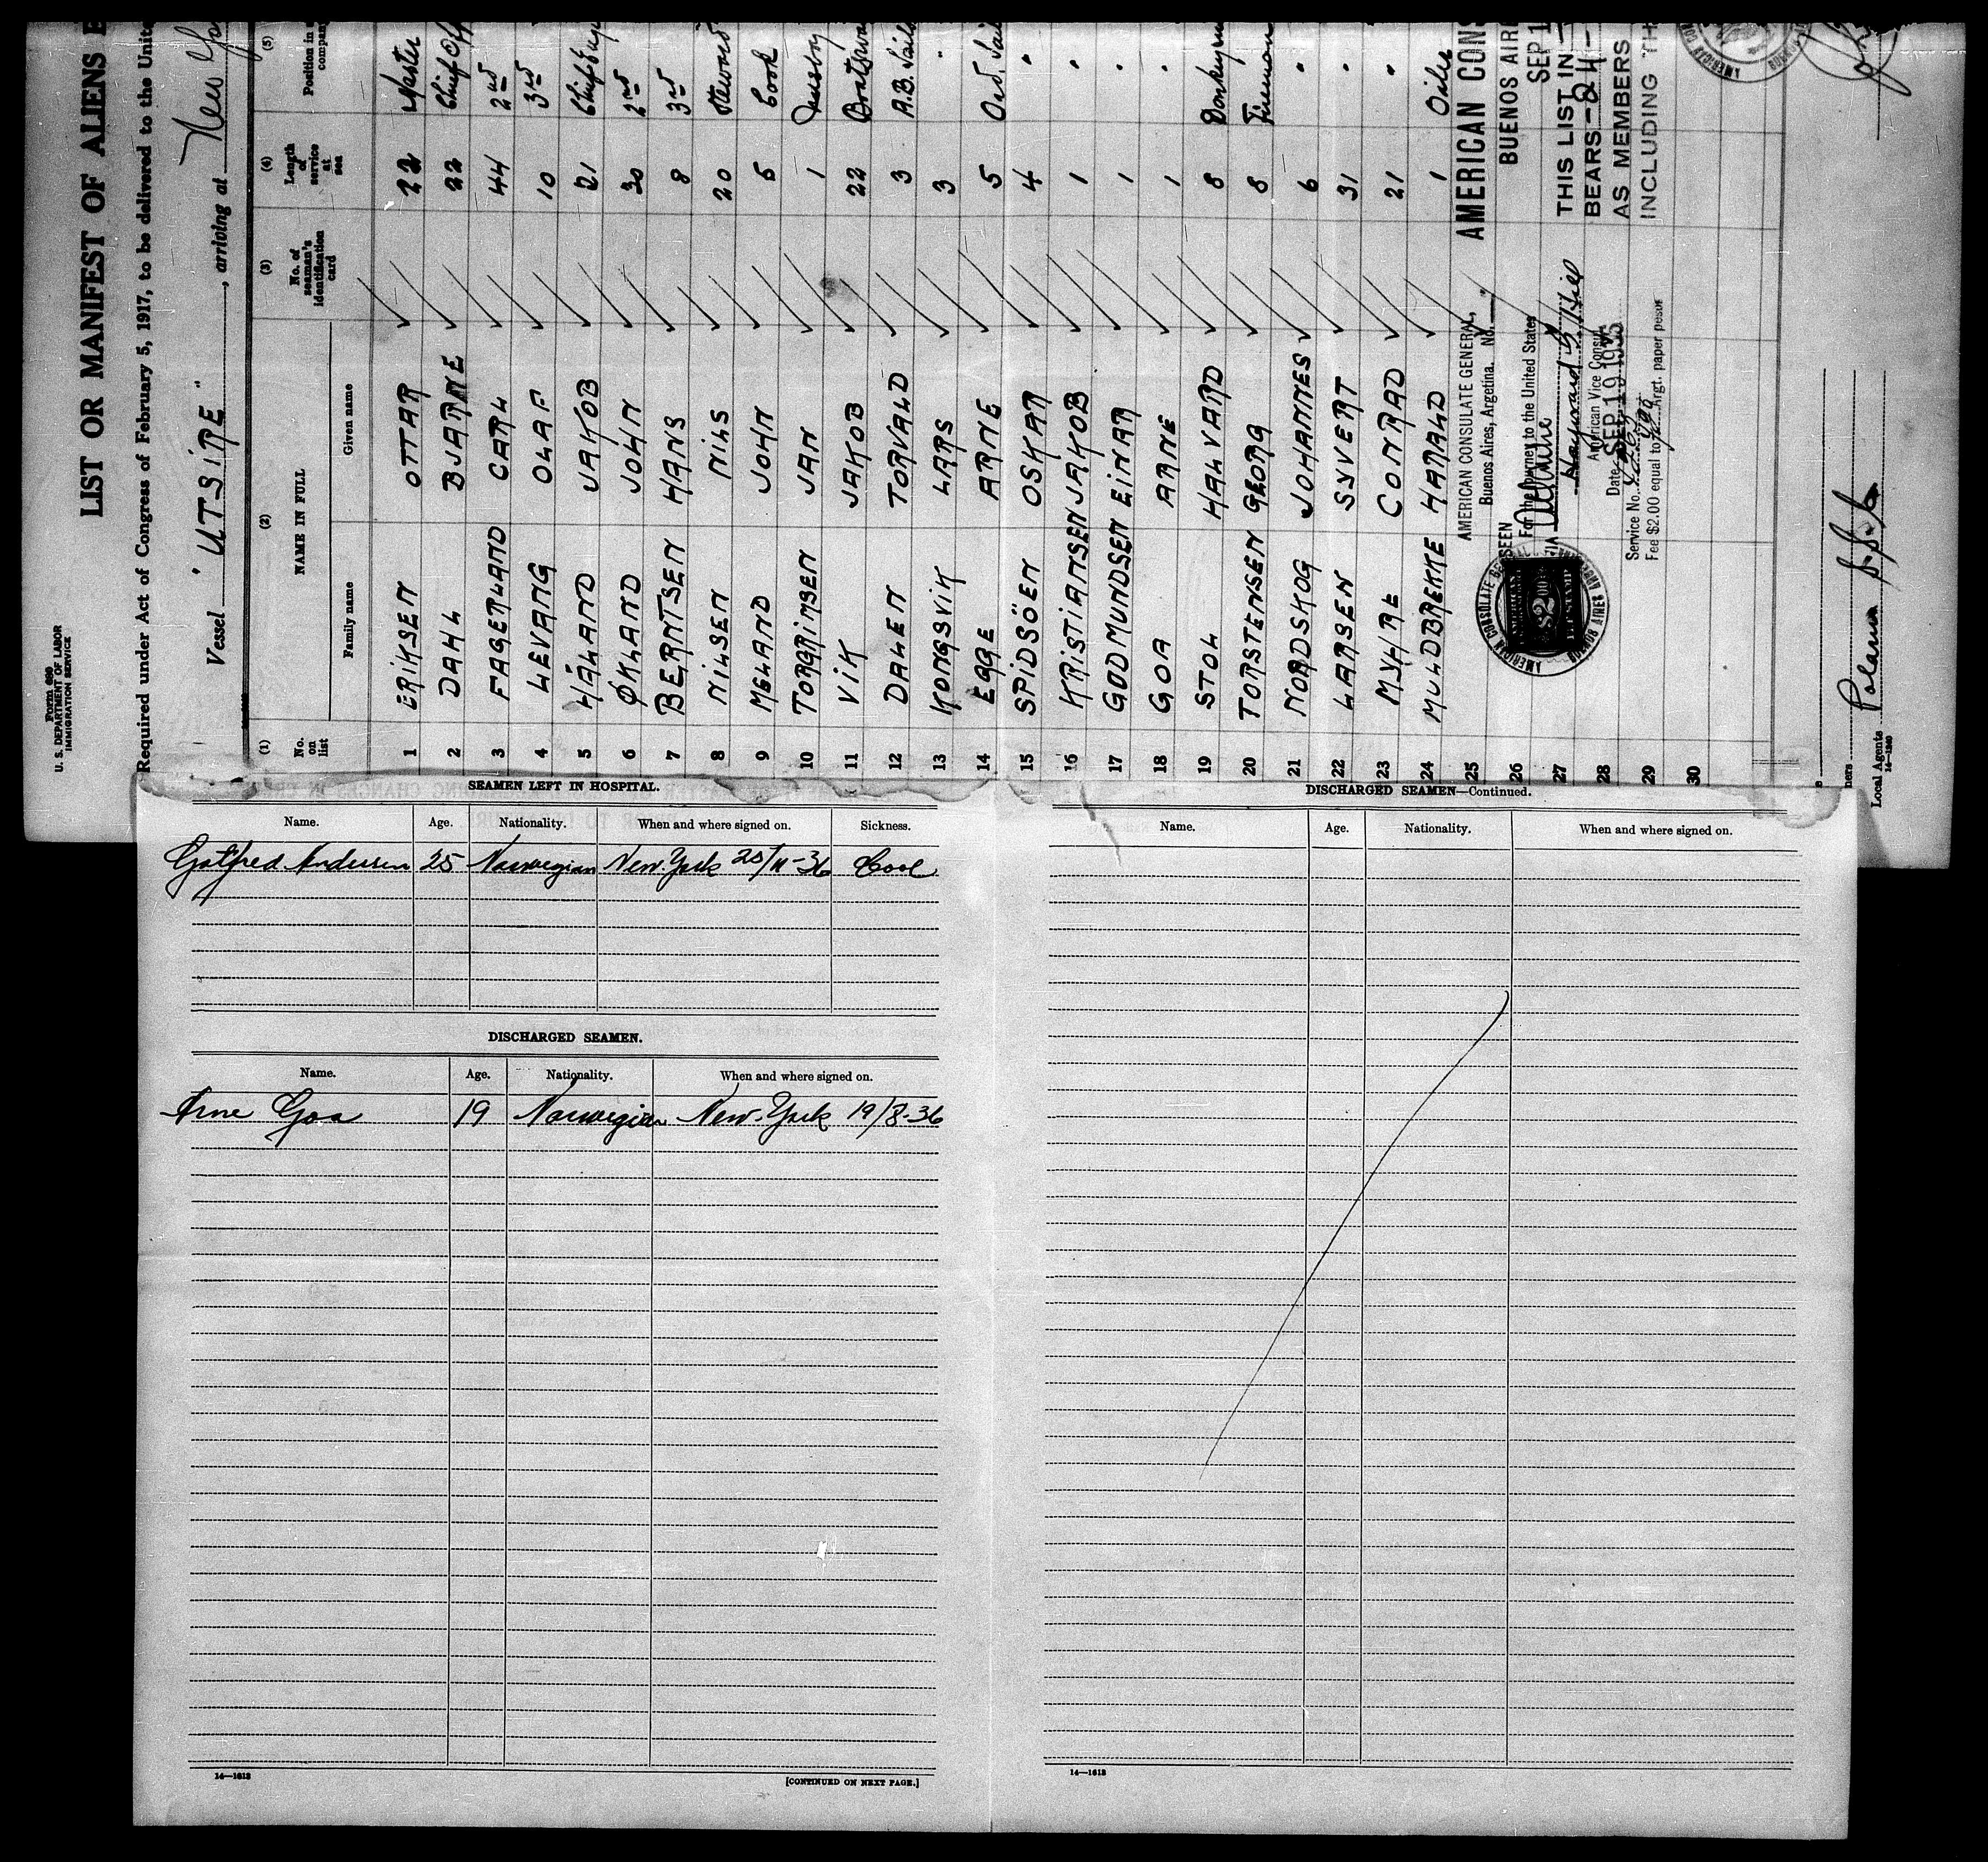 Form 680
U. S. DEPARTMENT OF LABOR
IMMIGRATION SERVICE
LIST OR MANIFEST OF ALIENS E
Required under Act of Congress of February 5, 1917, to be delivered to the Unite
Vessel "UTSIRE", arriving at New Yo
(1) (2) (3) (4) (5)
No. on list NAME IN FULL No. of seaman's identification card Length of service at sea Position in company
Family name Given name
1 ERIKSEN OTTAR 22 Master
2 DAHL BJARNE 22 Chief Off
3 FAGERLAND CARL 44 2nd
4 LEVANG OLAF 10 3rd
5 HÅLAND JAKOB 21 Chief Eng
6 ØKLAND JOHN 30 2nd
7 BERNTSEN HANS 8 3rd
8 NILSEN NILS 20 Steward
9 MELAND JOHN 5 Cook
10 TORGRIMSEN JAN 1 Messboy
11 VIK JAKOB 22 Boatswa
12 DALEN TORVALD 3 A.B. Sail
13 KONGSVIK LARS 3 "
14 EGGE ARNE 5 Ord. Sail
15 SPIDSÖEN OSKAR 4 "
16 KRISTIANSEN JAKOB 1 "
17 GODMUNDSEN EINAR 1 "
18 GOA ARNE 1 "
19 STOL HALVARD 8 Donkeym
20 TORSTENSEN GEORG 8 Fireman
21 NORDSKOG JOHANNES 6 "
22 LARSEN SYVERT 31 "
23 MYHRE CONRAD 21 "
24 MULDBREKKE HARALD 1 Oiler
25
26
27
28
29
30
AMERICAN CONSULATE GENERAL,
Buenos Aires, Argtina. No.
SEEN
For the journey to the United States
VIA
Hayward G Hill
American Vice Consul
Date SEP 19 1936
Service No.
Fee $2.00 equal to Argt. paper pesos
AMERICAN CONS
BUENOS AIRE
SEP 1
THIS LIST IN
BEARS -24-
AS MEMBERS
INCLUDING TH
ners
Local Agents
14-1240
SEAMEN LEFT IN HOSPITAL.
Name. Age. Nationality. When and where signed on. Sickness.
Gotfred Andersen 25 Norwegian New York 25/11-36
DISCHARGED SEAMEN.
Name. Age. Nationality. When and where signed on.
Arne Goa 19 Norwegian New York 19/8-36
14—1613
[CONTINUED ON NEXT PAGE.]
DISCHARGED SEAMEN—Continued.
Name. Age. Nationality. When and where signed on.
14—1613